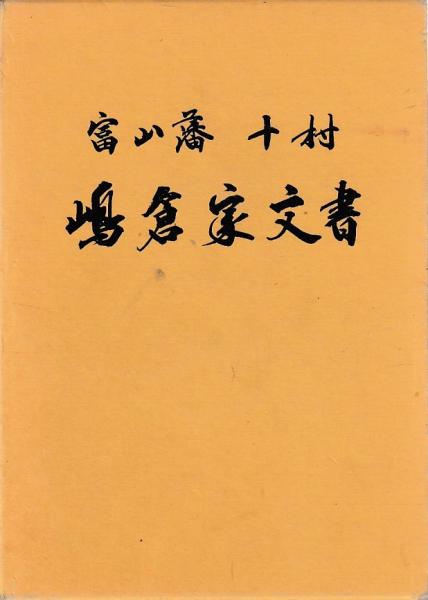 富山藩 十村
嶋倉家文書